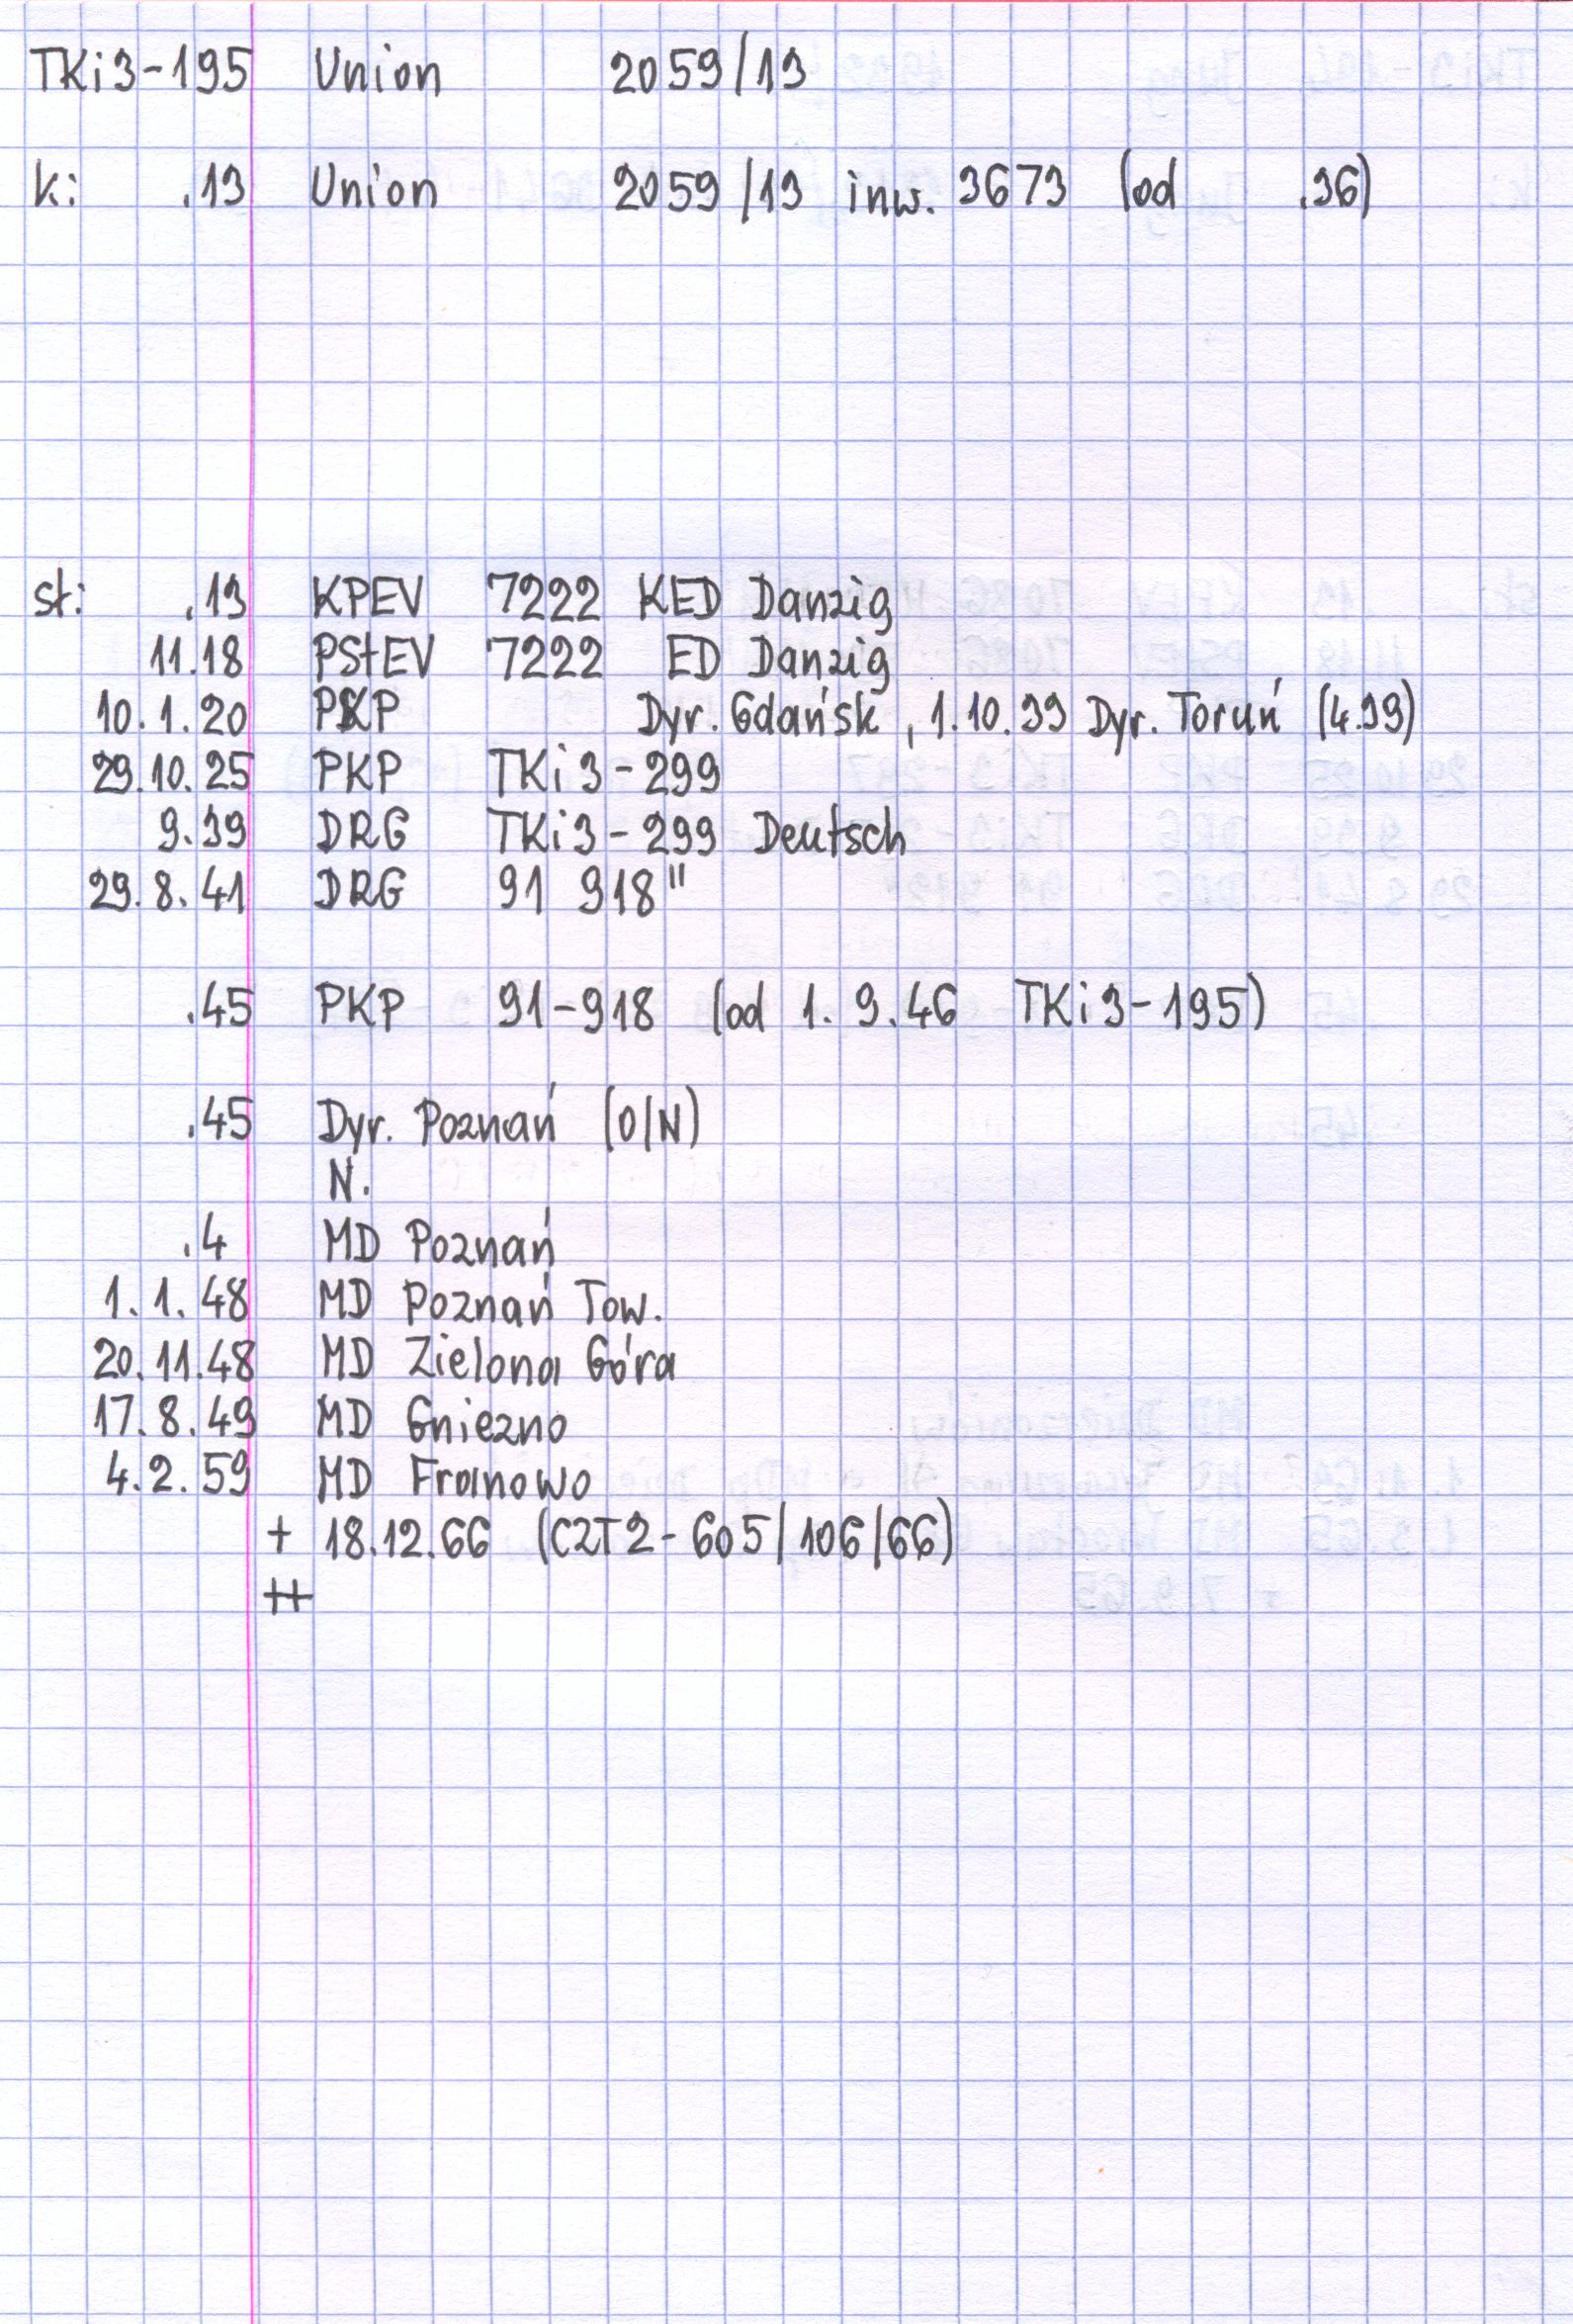 TKi3-195 Union 2059/13
k: .13 Union 2059/13 inw. 3673 (od .36)
st: .13 KPEV 7222 KED Danzig
11.18 PStEV 7222 ED Danzig
10.1.20 PKP Dyr. Gdańsk, 1.10.33 Dyr. Toruń (4.39)
29.10.25 PKP TKi3-299
9.39 DRG TKi3-299 Deutsch
29.8.41 DRG 91 918"
.45 PKP 91-918 (od 1.9.46 TKi3-195)
.45 Dyr. Poznań (O/N)
N.
.4 MD Poznań
1.1.48 MD Poznań Tow.
20.11.48 MD Zielona Góra
17.8.49 MD Gniezno
4.2.59 MD Franowo
+ 18.12.66 (CZT2-605/106/66)
++